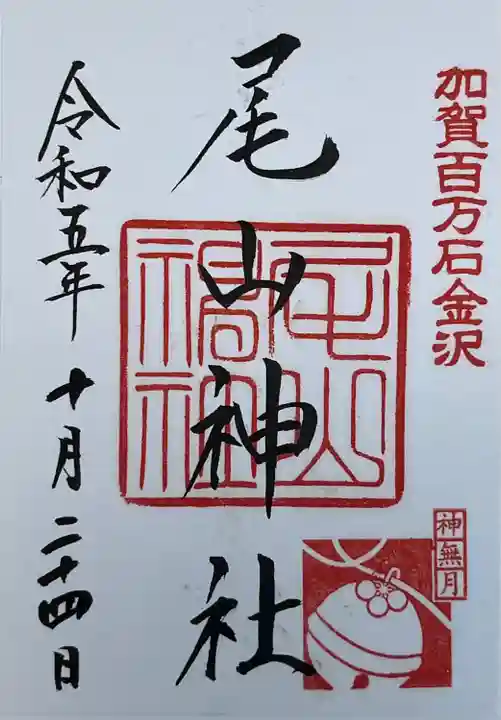 加賀百万石金沢
尾山神社
令和五年 十月二十四日
神無月